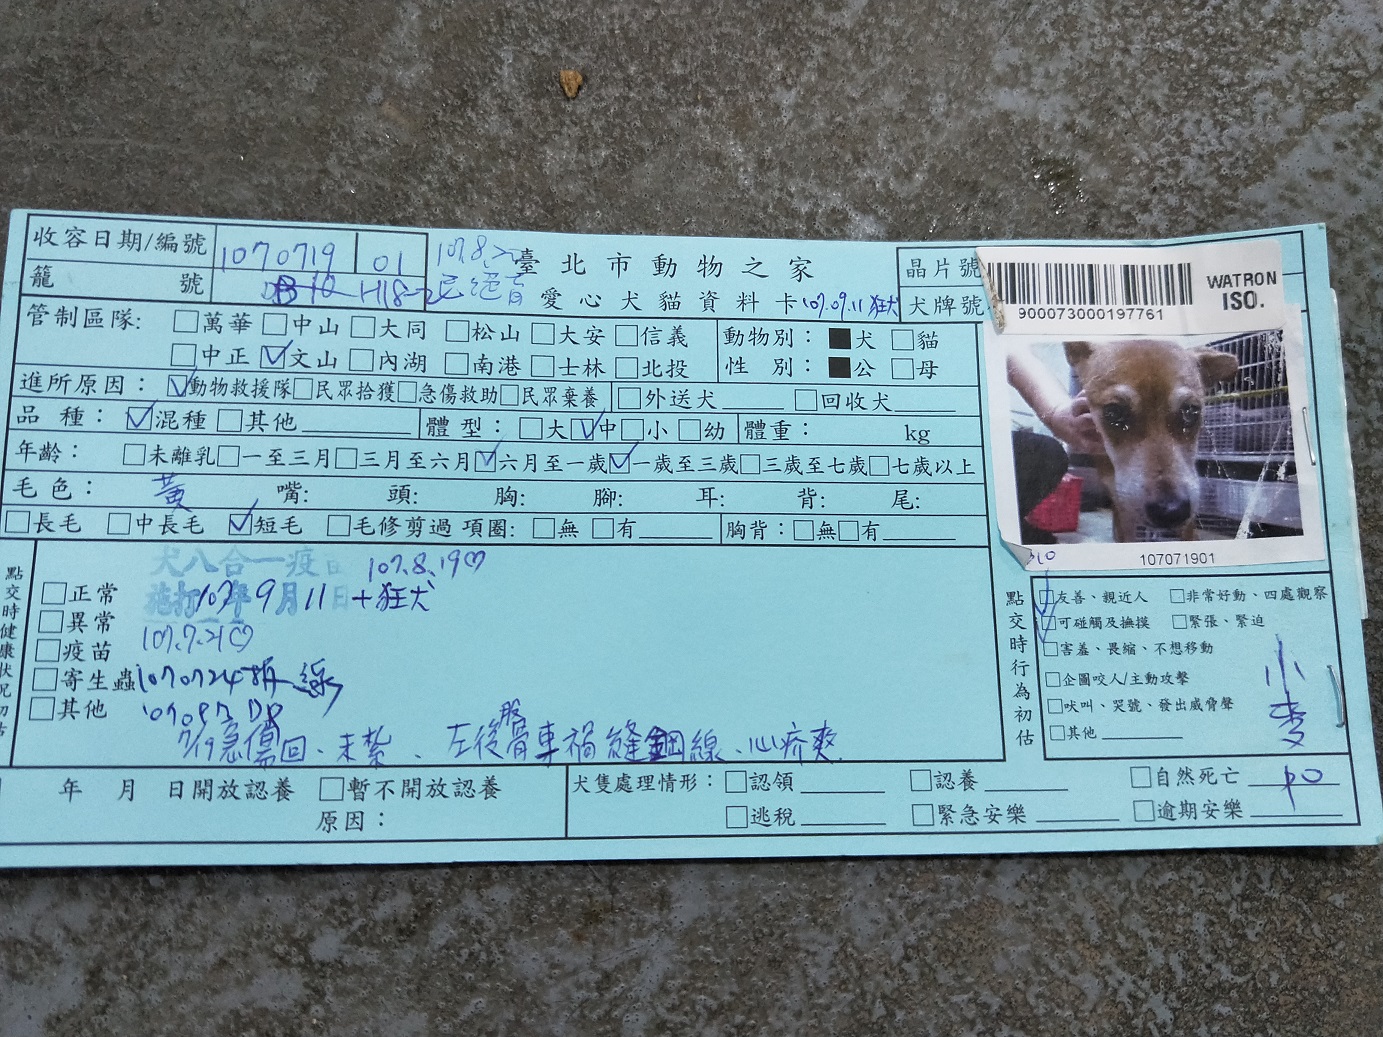 收容日期/編號 1070719 01 107.8.22 臺北市動物之家 晶片號
籠 號 H18-2 已絕育 愛心犬貓資料卡 107.09.11 狂犬 犬牌號
WATRON
ISO.
900073000197761
管制區隊: □萬華 □中山 □大同 □松山 □大安 □信義 動物別: ■犬 □貓
□中正 ☑文山 □內湖 □南港 □士林 □北投 性 別: ■公 □母
進所原因: ☑動物救援隊 □民眾拾獲 □急傷救助 □民眾棄養 □外送犬 □回收犬
品 種: ☑混種 □其他 體 型: □大 ☑中 □小 □幼 體重: kg
年齡: □未離乳 □一至三月 □三月至六月 ☑六月至一歲 ☑一歲至三歲 □三歲至七歲 □七歲以上
毛色: 黃 嘴: 頭: 胸: 腳: 耳: 背: 尾:
□長毛 □中長毛 ☑短毛 □毛修剪過 項圈: □無 □有 胸背: □無 □有
107071901
點交時健康狀況初估
犬八合一疫苗 107.8.19
□正常 施打107年9月11日+狂犬
□異常
□疫苗 107.7.21
□寄生蟲 1070724拆線
□其他
7/19急傷回、未紮、左後股骨車禍縫鋼線、心疥爽
點交時行為初估
□友善、親近人 □非常好動、四處觀察
□可碰觸及撫摸 □緊張、緊迫
□害羞、畏縮、不想移動
□企圖咬人/主動攻擊
□吠叫、哭號、發出威脅聲
□其他
小麥
年 月 日開放認養 □暫不開放認養 犬隻處理情形: □認領 □認養 □自然死亡
原因: □逃稅 □緊急安樂 □逾期安樂